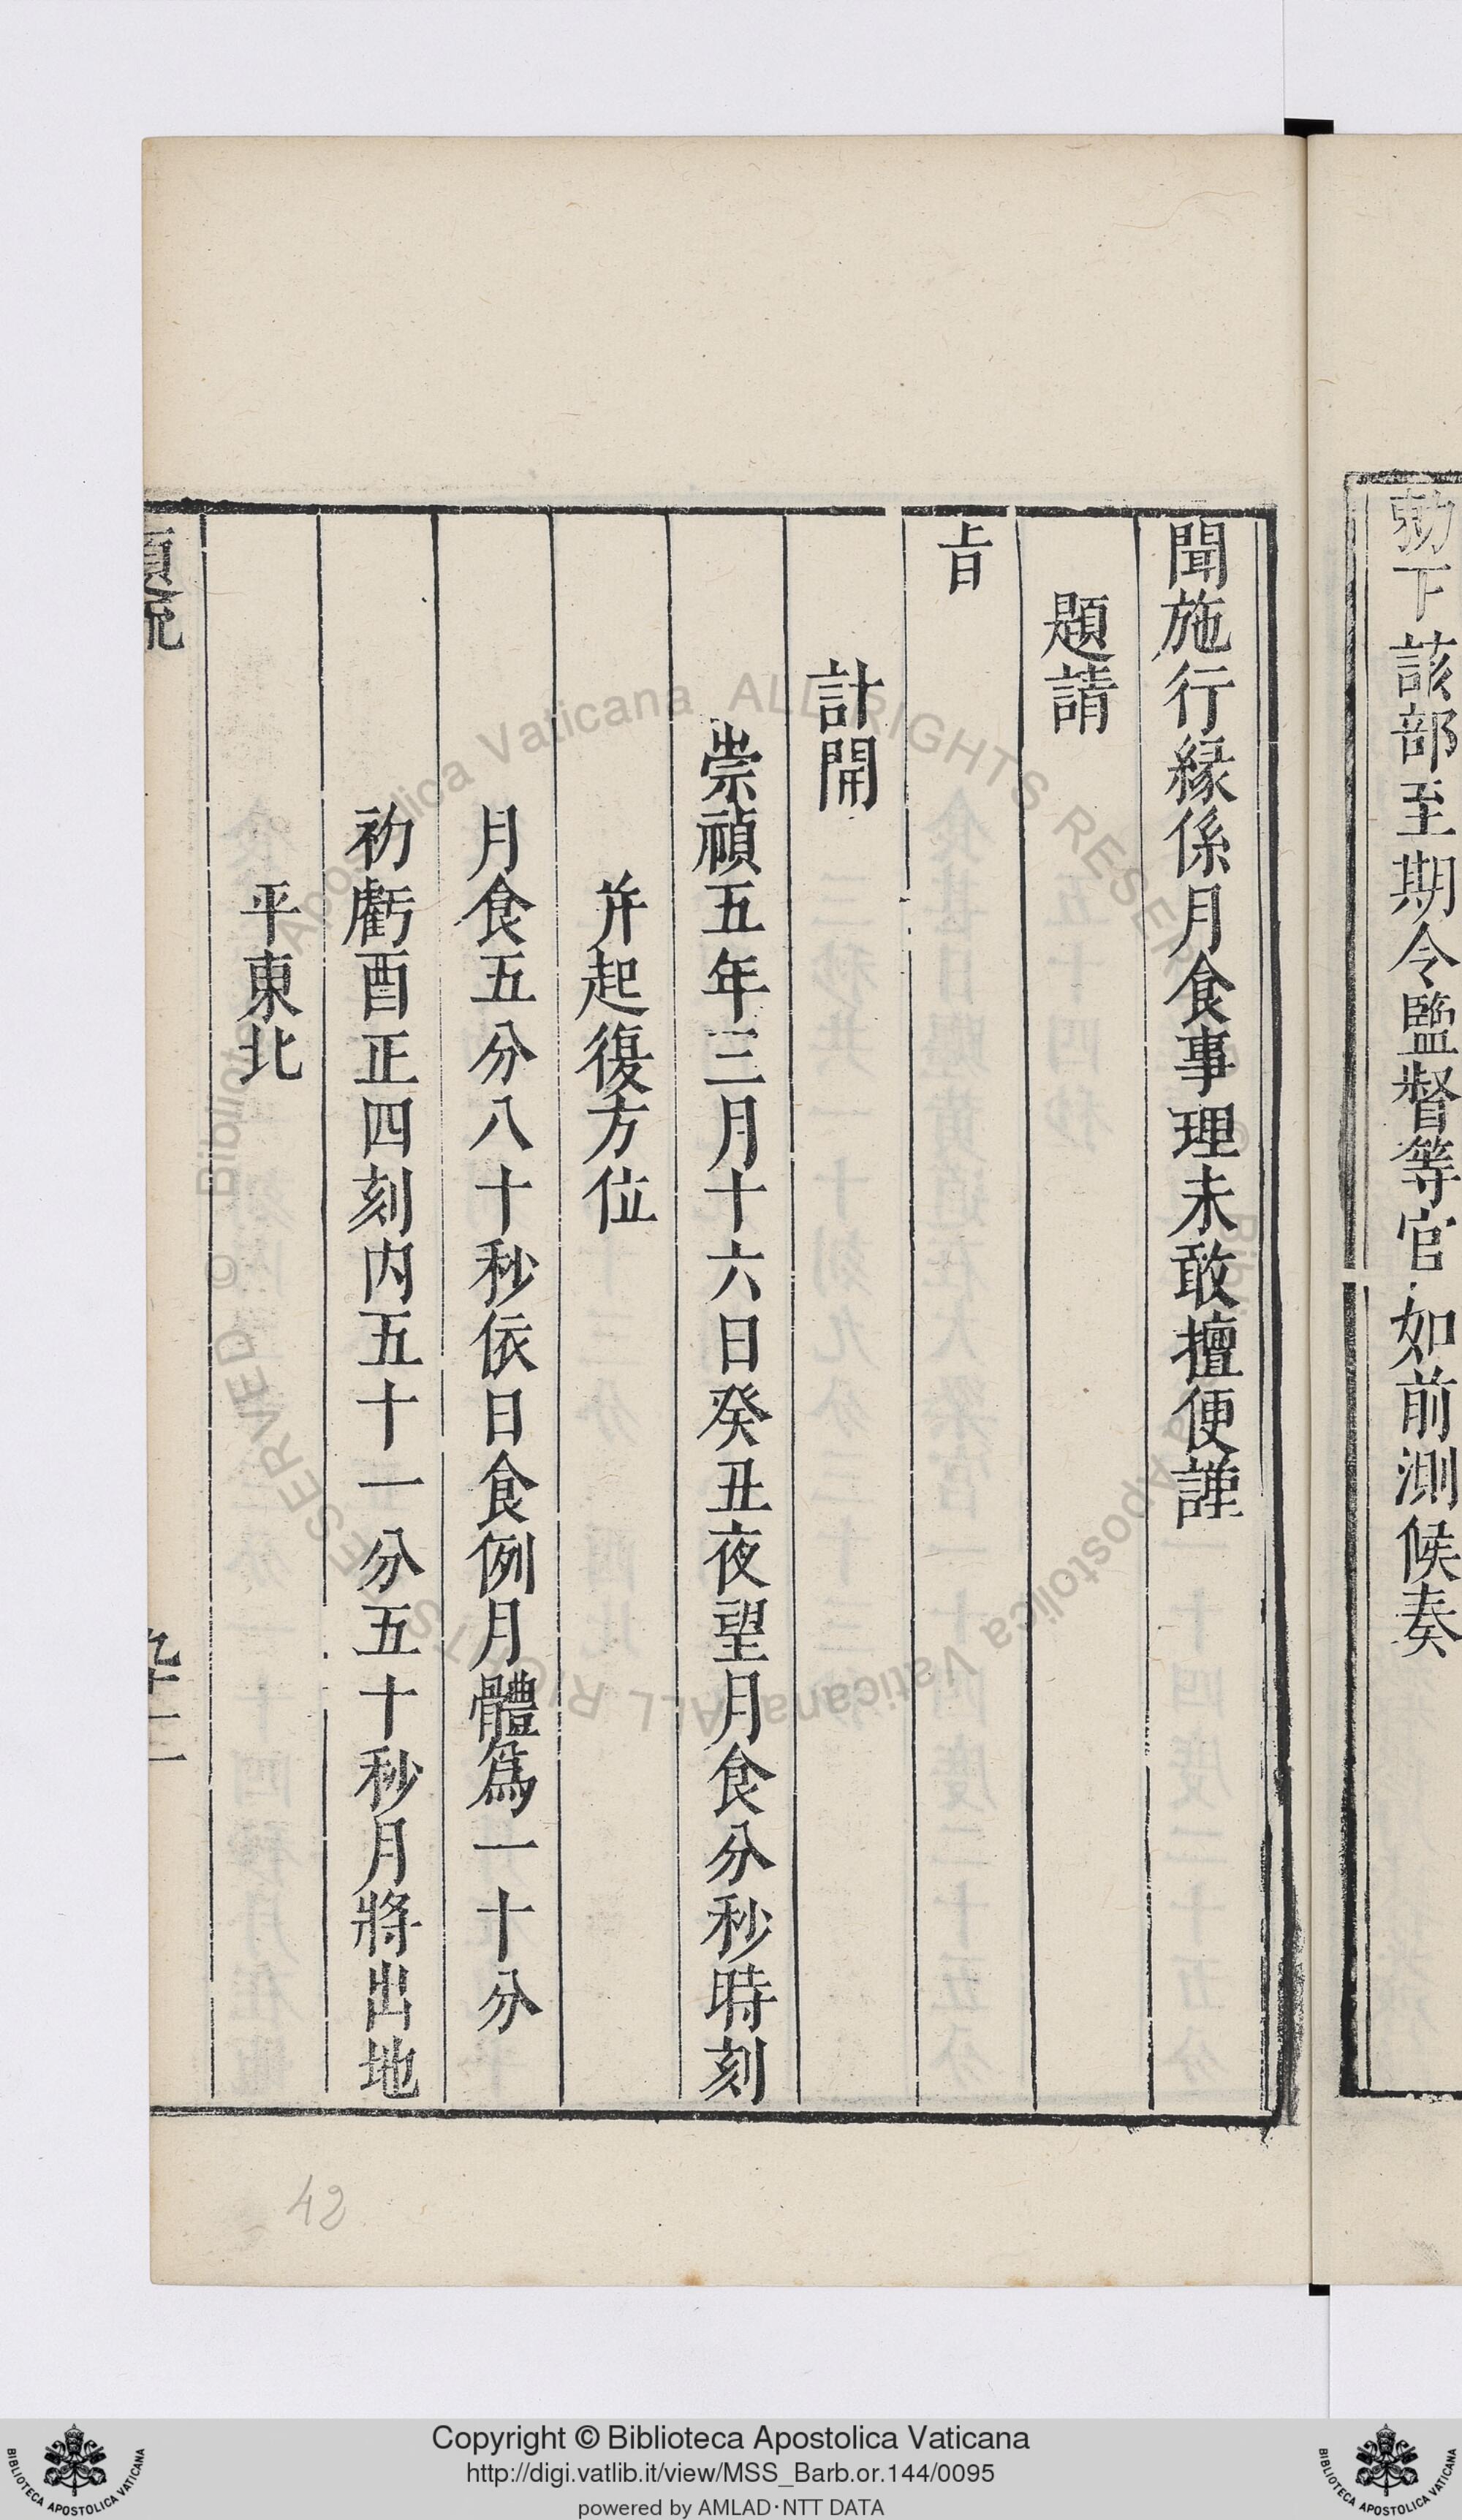 勅下該部至期令監督等官如前測候奏
聞施行緣係月食事理未敢擅便謹
題請
旨
計開
崇禎五年三月十六日癸丑夜望月食分秒時刻
并起復方位
月食五分八十秒依日食例月體爲一十分
初虧酉正四刻内五十一分五十秒月將出地
平東北
42
© Biblioteca Apostolica Vaticana ALL RIGHTS RESERVED
Copyright © Biblioteca Apostolica Vaticana
http://digi.vatlib.it/view/MSS_Barb.or.144/0095
powered by AMLAD·NTT DATA
BIBLIOTECA APOSTOLICA VATICANA
BIBLIOTECA APOSTOLICA VATICANA